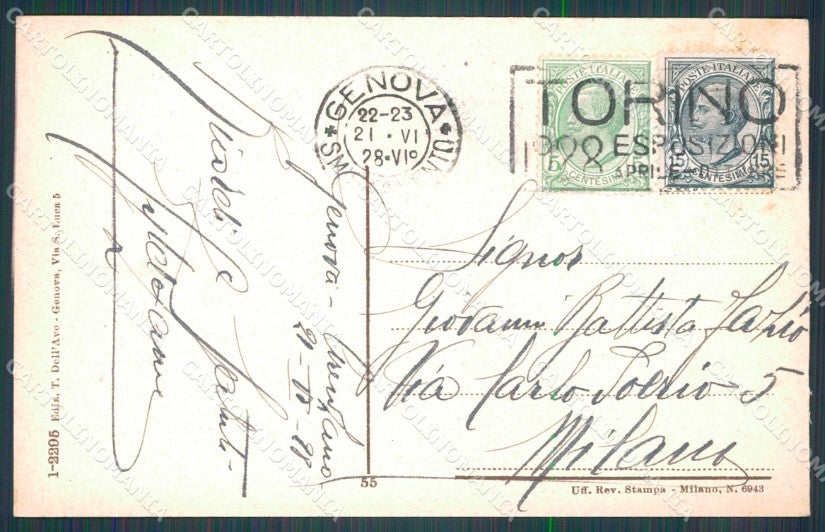 GENOVA
22-23
21 · VI
28·VIº
TORINO
928 ESPOSIZIONI
APRILE
POSTE ITALIANE
5
CENTESIMI
POSTE ITALIANE
15 15
CENTESIMI
Genova -
21-VI-28
Signor
Giovanni Battista Fazio
Via Carlo Poerio 5
Milano
1-2205 Ediz. T. Dell'Avo - Genova, Via S. Luca 5
55
Uff. Rev. Stampa - Milano, N. 6943
CARTOLINOMANIA